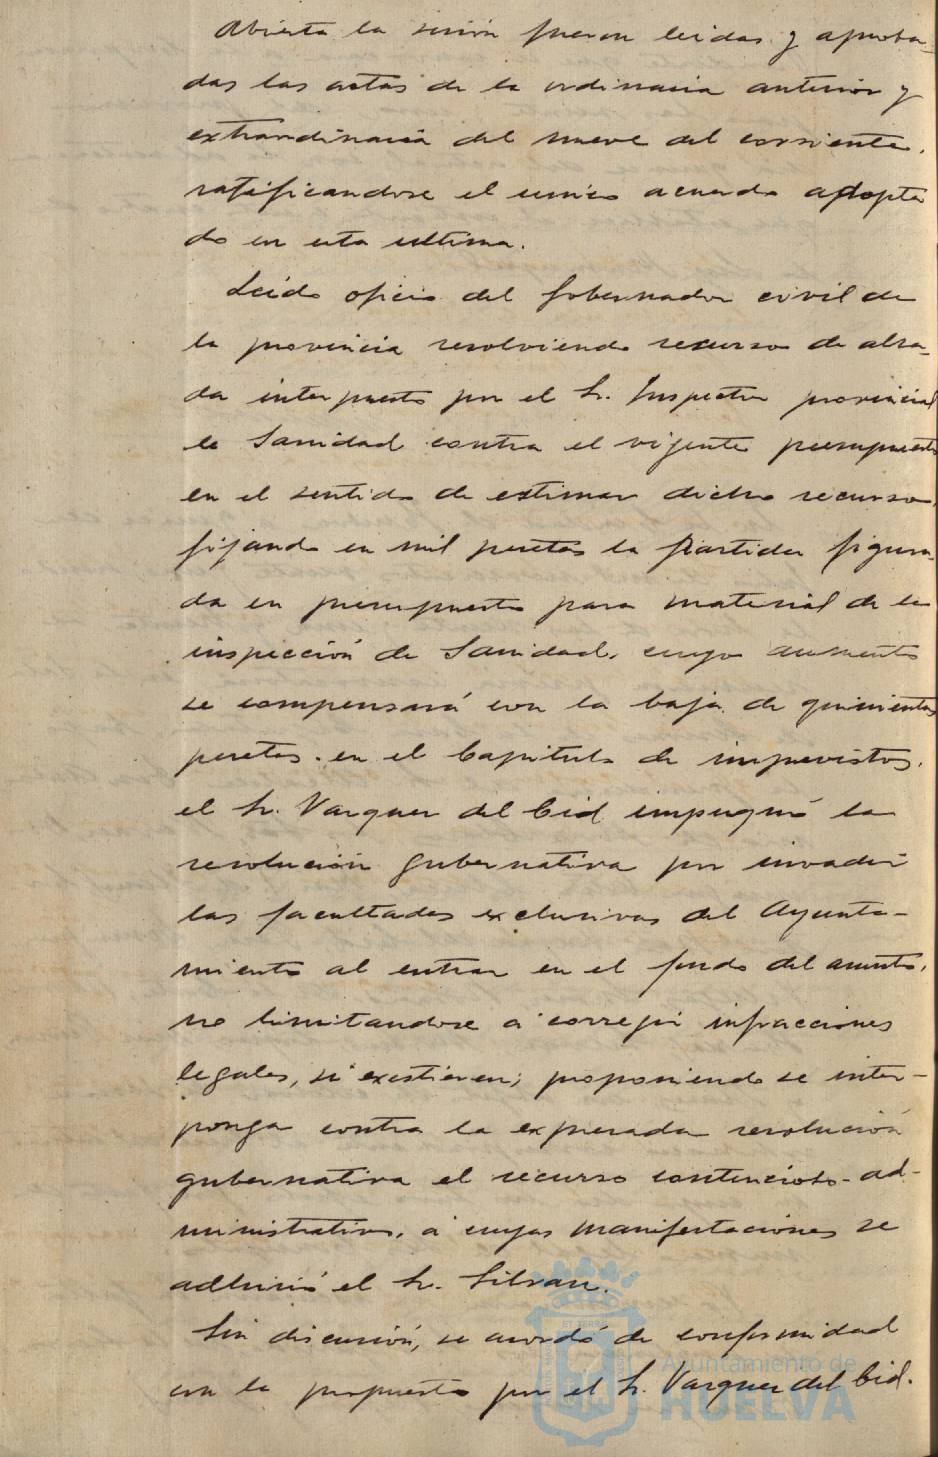 Abierta la sesión fueron leidas y aproba-
das las actas de la ordinaria anterior y
extraordinaria del nueve del corriente,
ratificandose el único acuerdo adopta
do en esta ultima.
Leido oficio del Gobernador civil de
la provincia resolviendo recurso de alza-
da interpuesto por el Sr. Inspector provincial
de Sanidad contra el vigente presupuesto
en el sentido de estimar dicho recurso,
fijando en mil pesetas la partida figura-
da en presupuesto para material de la
inspección de Sanidad, cuyo aumento
se compensará con la baja de quinientas
pesetas en el Capitulo de imprevistos,
el Sr. Vazquez del Cid impugnó la
resolución gubernativa por invadir
las facultades exclusivas del Ayunta-
miento al entrar en el fondo del asunto,
no limitandose a corregir infracciones
legales, si existieren; proponiendo se inter-
ponga contra la expresada resolución
gubernativa el recurso contencioso-ad-
ministrativo, a cuyas manifestaciones se
adhirió el Sr. Silvan.
Sin discusión, se acordó de conformidad
con lo propuesto por el Sr. Vazquez del Cid.
Ayuntamiento de
HUELVA